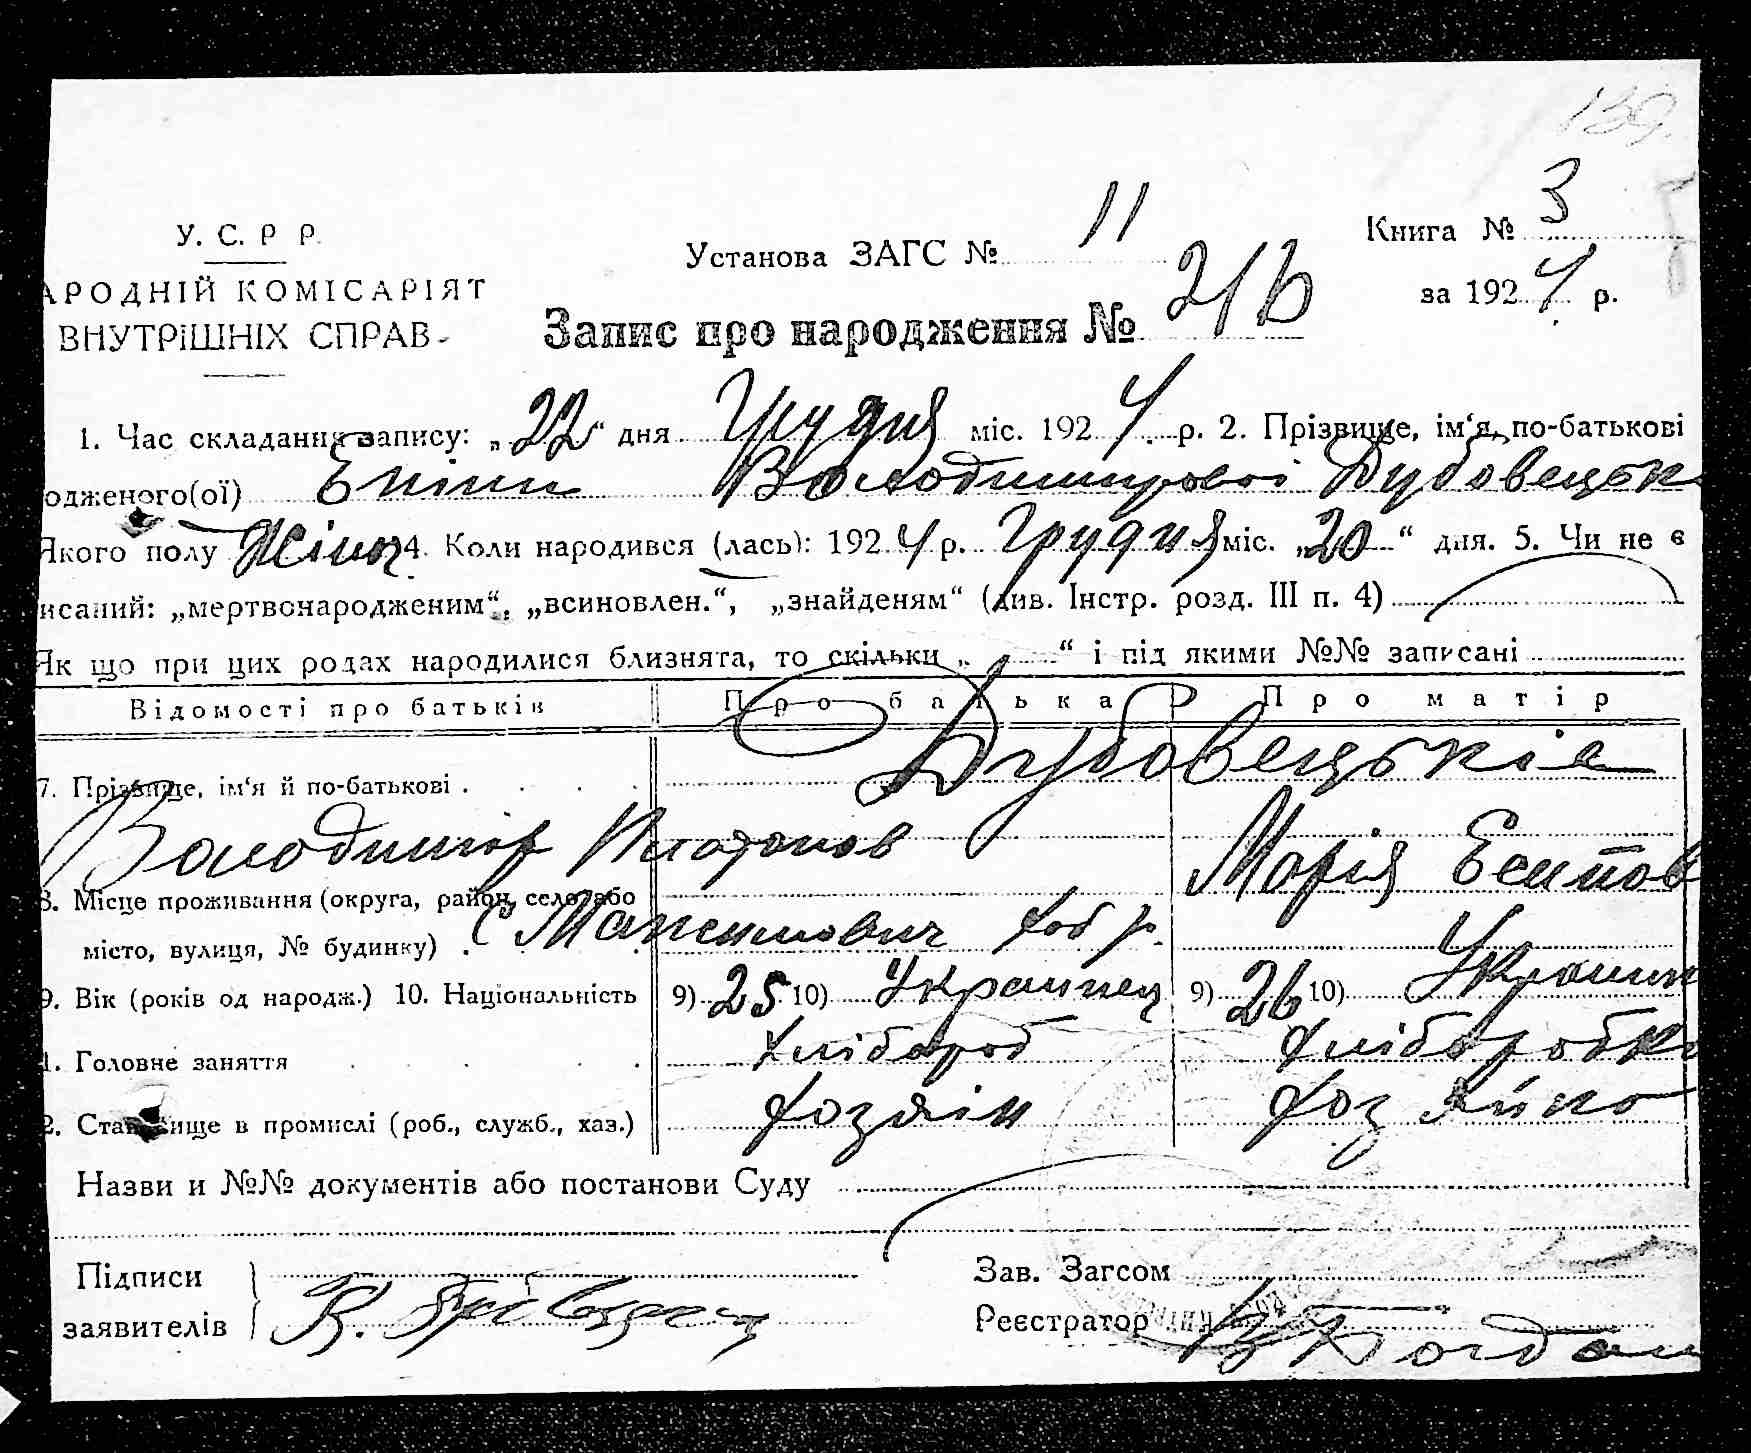 139.
У. С. Р Р.
АРОДНІЙ КОМІСАРІЯТ
ВНУТРІШНІХ СПРАВ
Установа ЗАГС № 11
Книга № 3
за 1924 р.
Запис про народження № 216
1. Час складання запису: „22“ дня Грудня міс. 1924 р. 2. Прізвище, ім‘я, по-батькові
одженого(ої) Володимирові Дубовецьк
Якого полу Жіноч 4. Коли народився (лась): 1924 р. Грудня міс. „20“ дня. 5. Чи не є
исаний: „мертвонародженим“, „всиновлен.“, „знайденям“ (див. Інстр. розд. III п. 4)
Як що при цих родах народилися близнята, то скільки „ “ і під якими №№ записані
Відомості про батьків Про батька Про матір
7. Прізвище, ім‘я й по-батькові . Дубовецькіе
Володимір Платонов Марія Есипов
8. Місце проживання (округа, район, село або
місто, вулиця, № будинку) . с Максимович
9. Вік (років од народж.) 10. Національність 9) 25 10) Украинец 9) 26 10) Украинк
1. Головне заняття Хлібороб Хліборобка
2. Становище в промислі (роб., служб., хаз.) Хозяін Хозяйка
Назви и №№ документів або постанови Суду
Підписи
заявителів
Зав. Загсом
Реєстратор Богдан